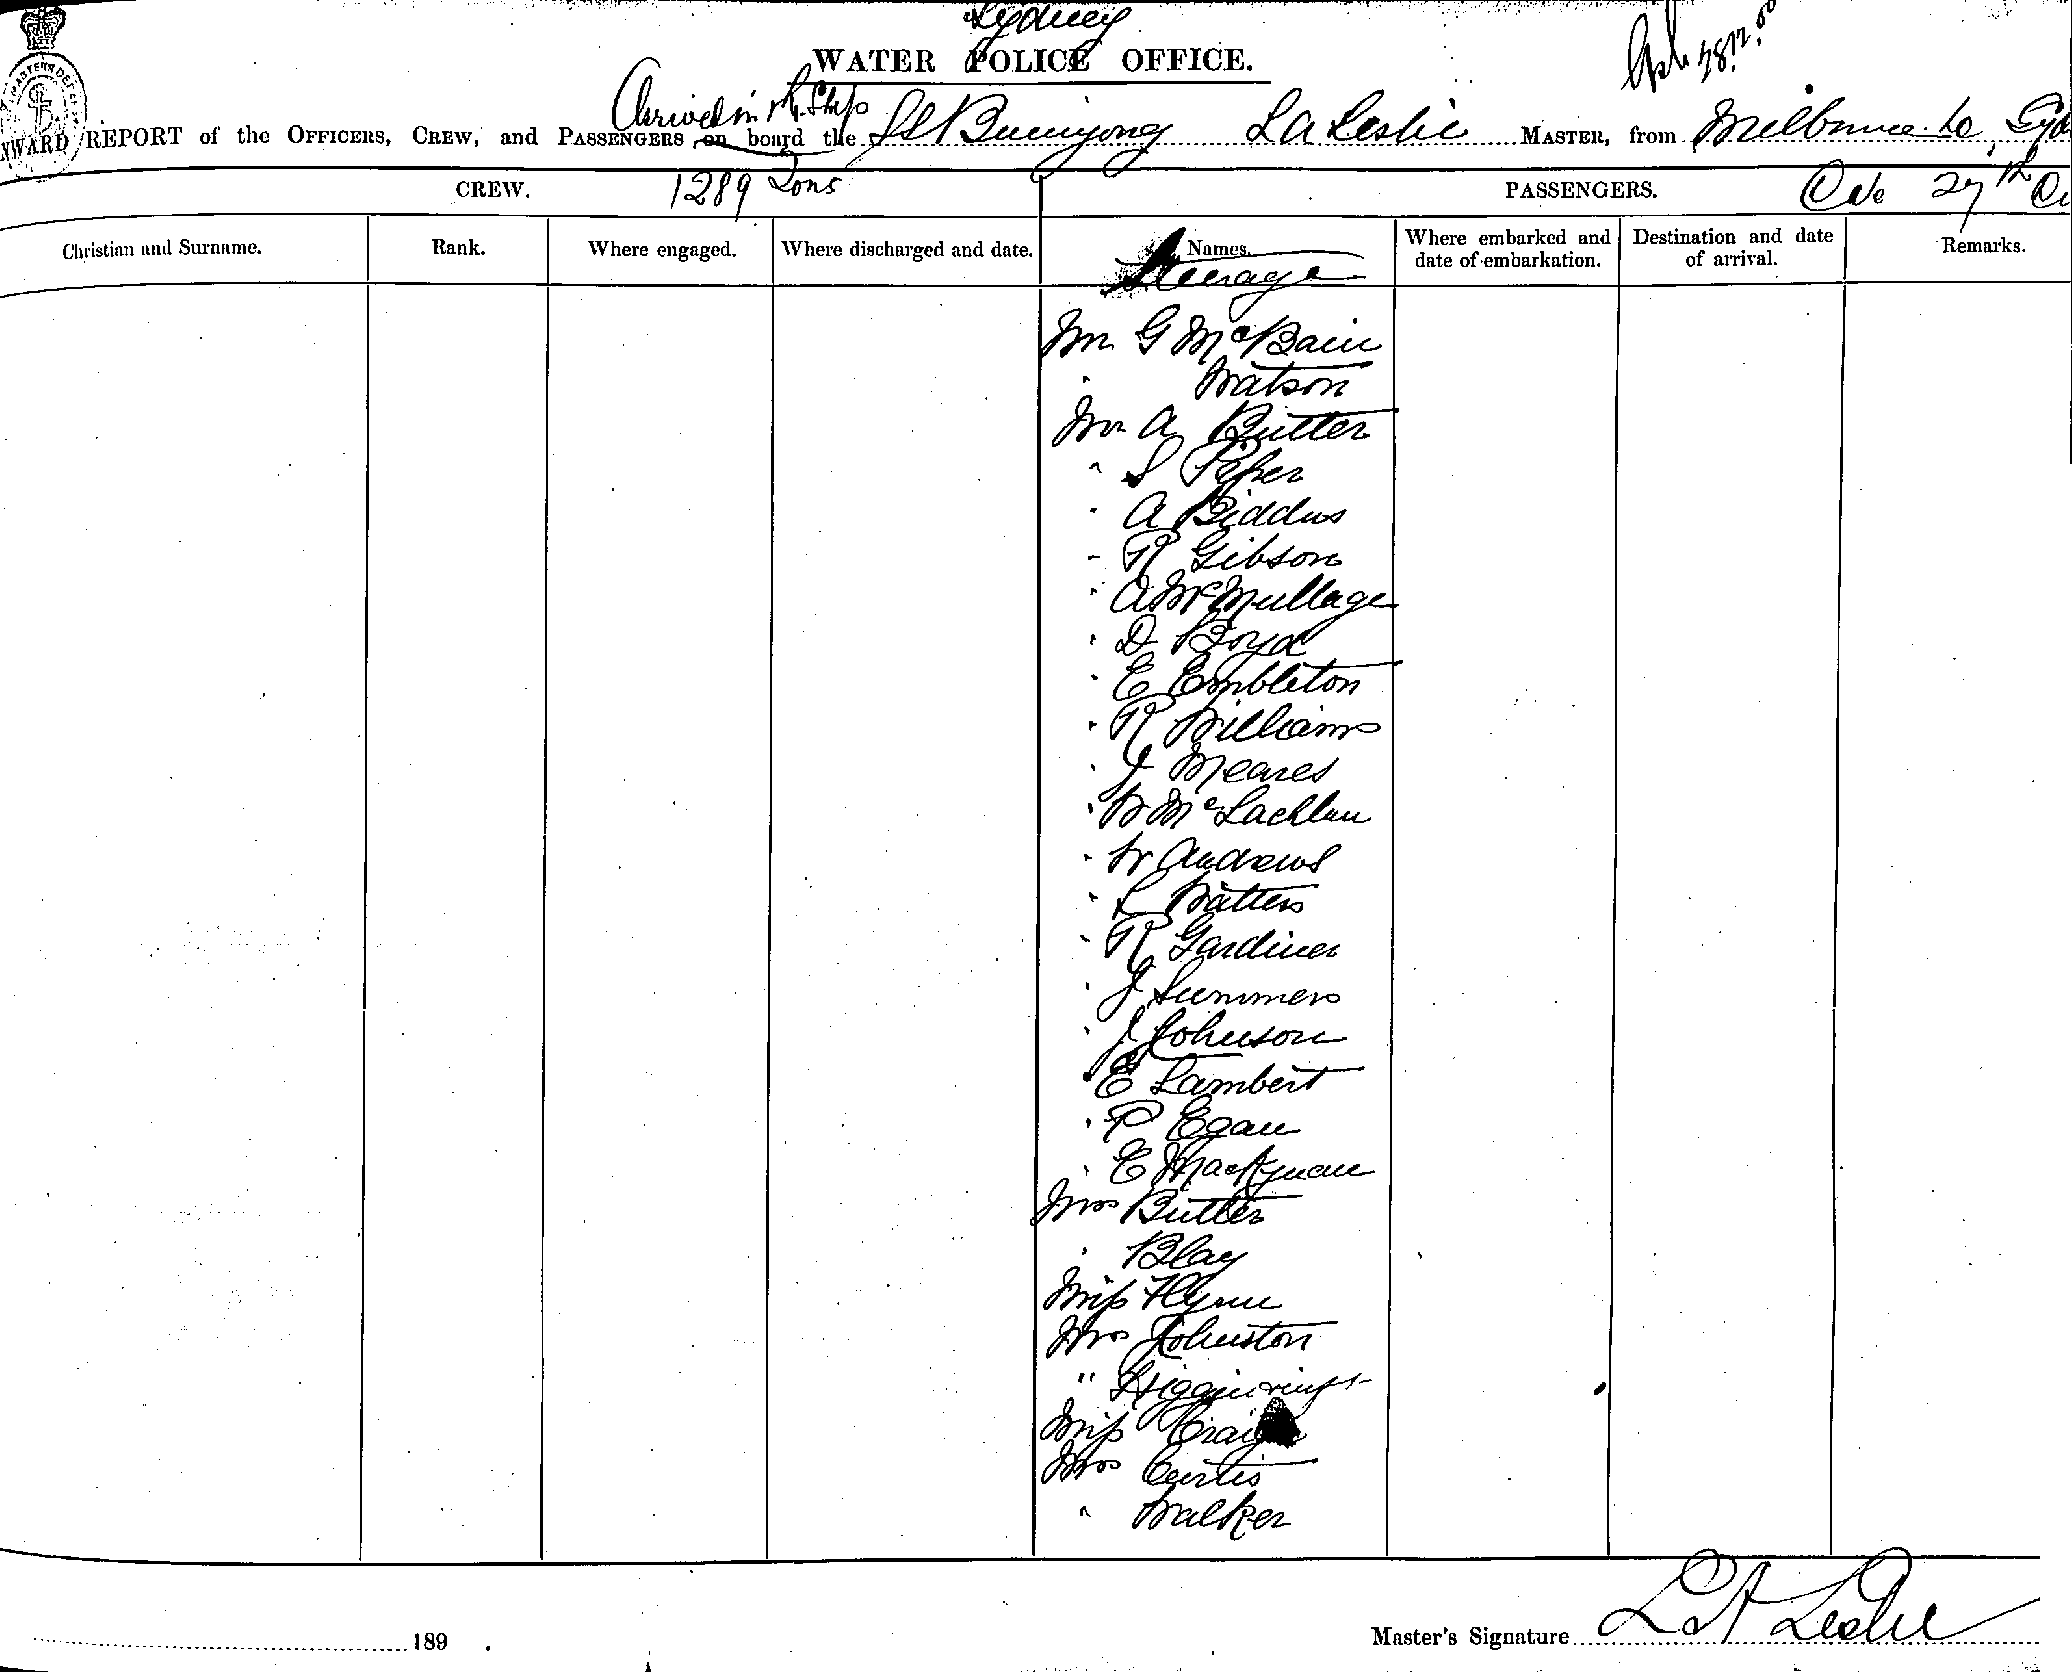 Sydney
WATER POLICE OFFICE.
Arrived in Ship
NWARD REPORT of the OFFICERS, CREW, and PASSENGERS on board the SS Buninyong L A Leslie MASTER, from Melbourne to Syd
CREW. 1289 Tons PASSENGERS. 27th
Christian and Surname. Rank. Where engaged. Where discharged and date. Names. Where embarked and date of embarkation. Destination and date of arrival. Remarks.
Steerage
Mr G McBain
" Watson
Mr A Butter
" S Piper
" A Biddus
" R Gibson
" A McMullage
" D Boyd
" E Embleton
" R Williams
" J Meares
" W McLachlan
" W Andrews
" L Watters
" R Gardiner
" J Summers
" J Johnson
" E Lambert
" P Egan
" E
Mrs Butter
" Blay
Miss Flynn
Mrs Johnston
"
Miss Craig
Mrs Curtis
" Walker
189 .
Master's Signature L A Leslie